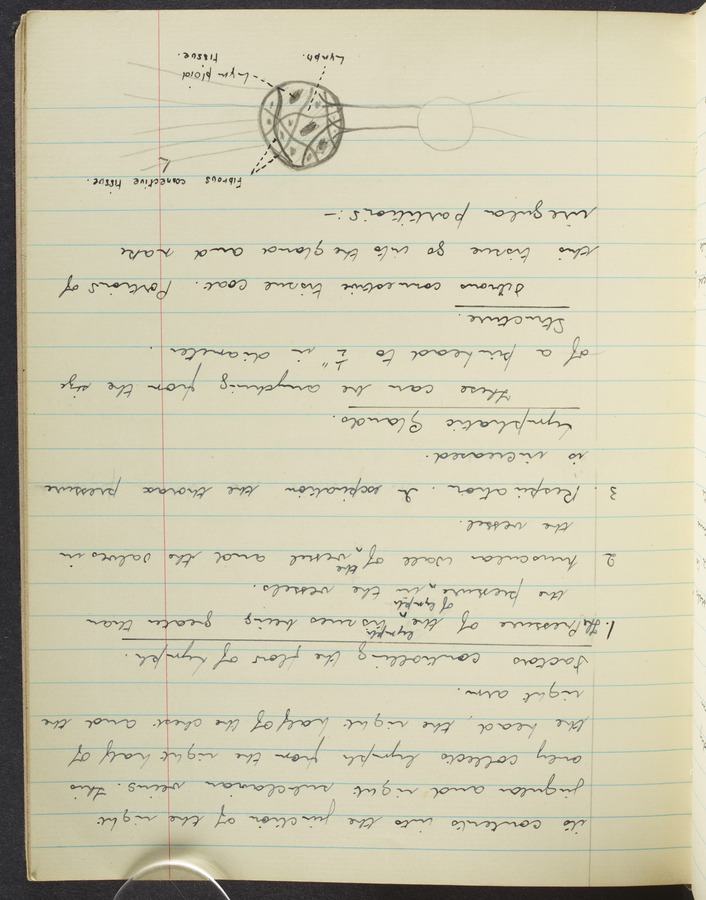 its contents into the junction of the right
jugular and right subclavian veins. This
only collects lymph from the right half of
the head, the right half of the chest and the
right arm.
Factors controlling the flow of lymph.
1. the Pressure of the lymph tissues being greater than
the pressure of lymph in the vessels.
2 muscular wall of the vessel and the valves in
the vessel.
3. Respiration. In expiration the thorax pressure
is increased.
Lymphatic Glands.
these can be anything from the size
of a pinhead to ½" in diameter.
Structure.
fibrous connective tissue coat. Portions of
this tissue go into the gland and make
irregular partitions :-
Fibrous connective tissue.
Lymphoid
tissue.
Lymph.